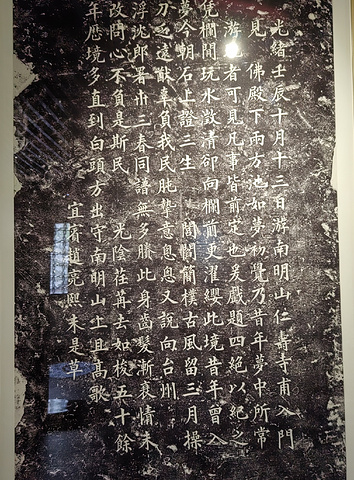 光緒壬辰十月十三日游南明山仁壽寺甫入門
見佛殿下兩方池如夢初覺乃昔年夢中所常
游者可見凡事皆前定也爰戲題四絕以紀之
凭欄閒玩水澂清卻向欄前更濯纓此境昔年曾入
夢今朝石上證三生 閭閻簡樸古風留三月操
刀乏遠猷辜負我民肫摯意悤悤又說向台州
浮沈郎署卅三春同譜無多賸此身齒髮漸衰情未
改問心不負是斯民 光陰荏苒去如梭五十餘
年歷境多直到白頭方出守南明山上且高歌
宜賓趙亮熙未是草